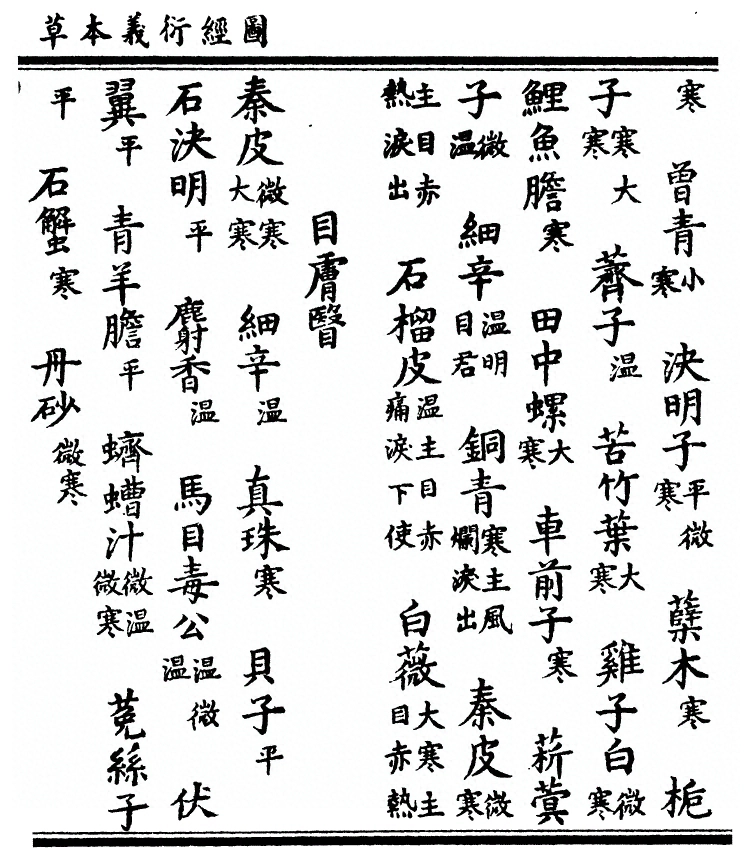 圖經衍義本草
寒 曾青小寒 決明子平微寒 蘗木寒 梔
子寒大寒 薺子溫 苦竹葉大寒 雞子白微寒
鯉魚膽寒 田中螺大寒 車前子寒 菥蓂
子微溫 細辛溫明目君 銅青寒主風爛淚出 秦皮微寒
主目赤熱淚出 石榴皮溫主目赤痛淚下使 白薇大寒主目赤熱
目膚瞖
秦皮微寒大寒 細辛溫 真珠寒 貝子平
石決明平 麝香溫 馬目毒公溫微溫 伏
翼平 青羊膽平 蠐螬汁微溫微寒 菟絲子
平 石蟹寒 丹砂微寒